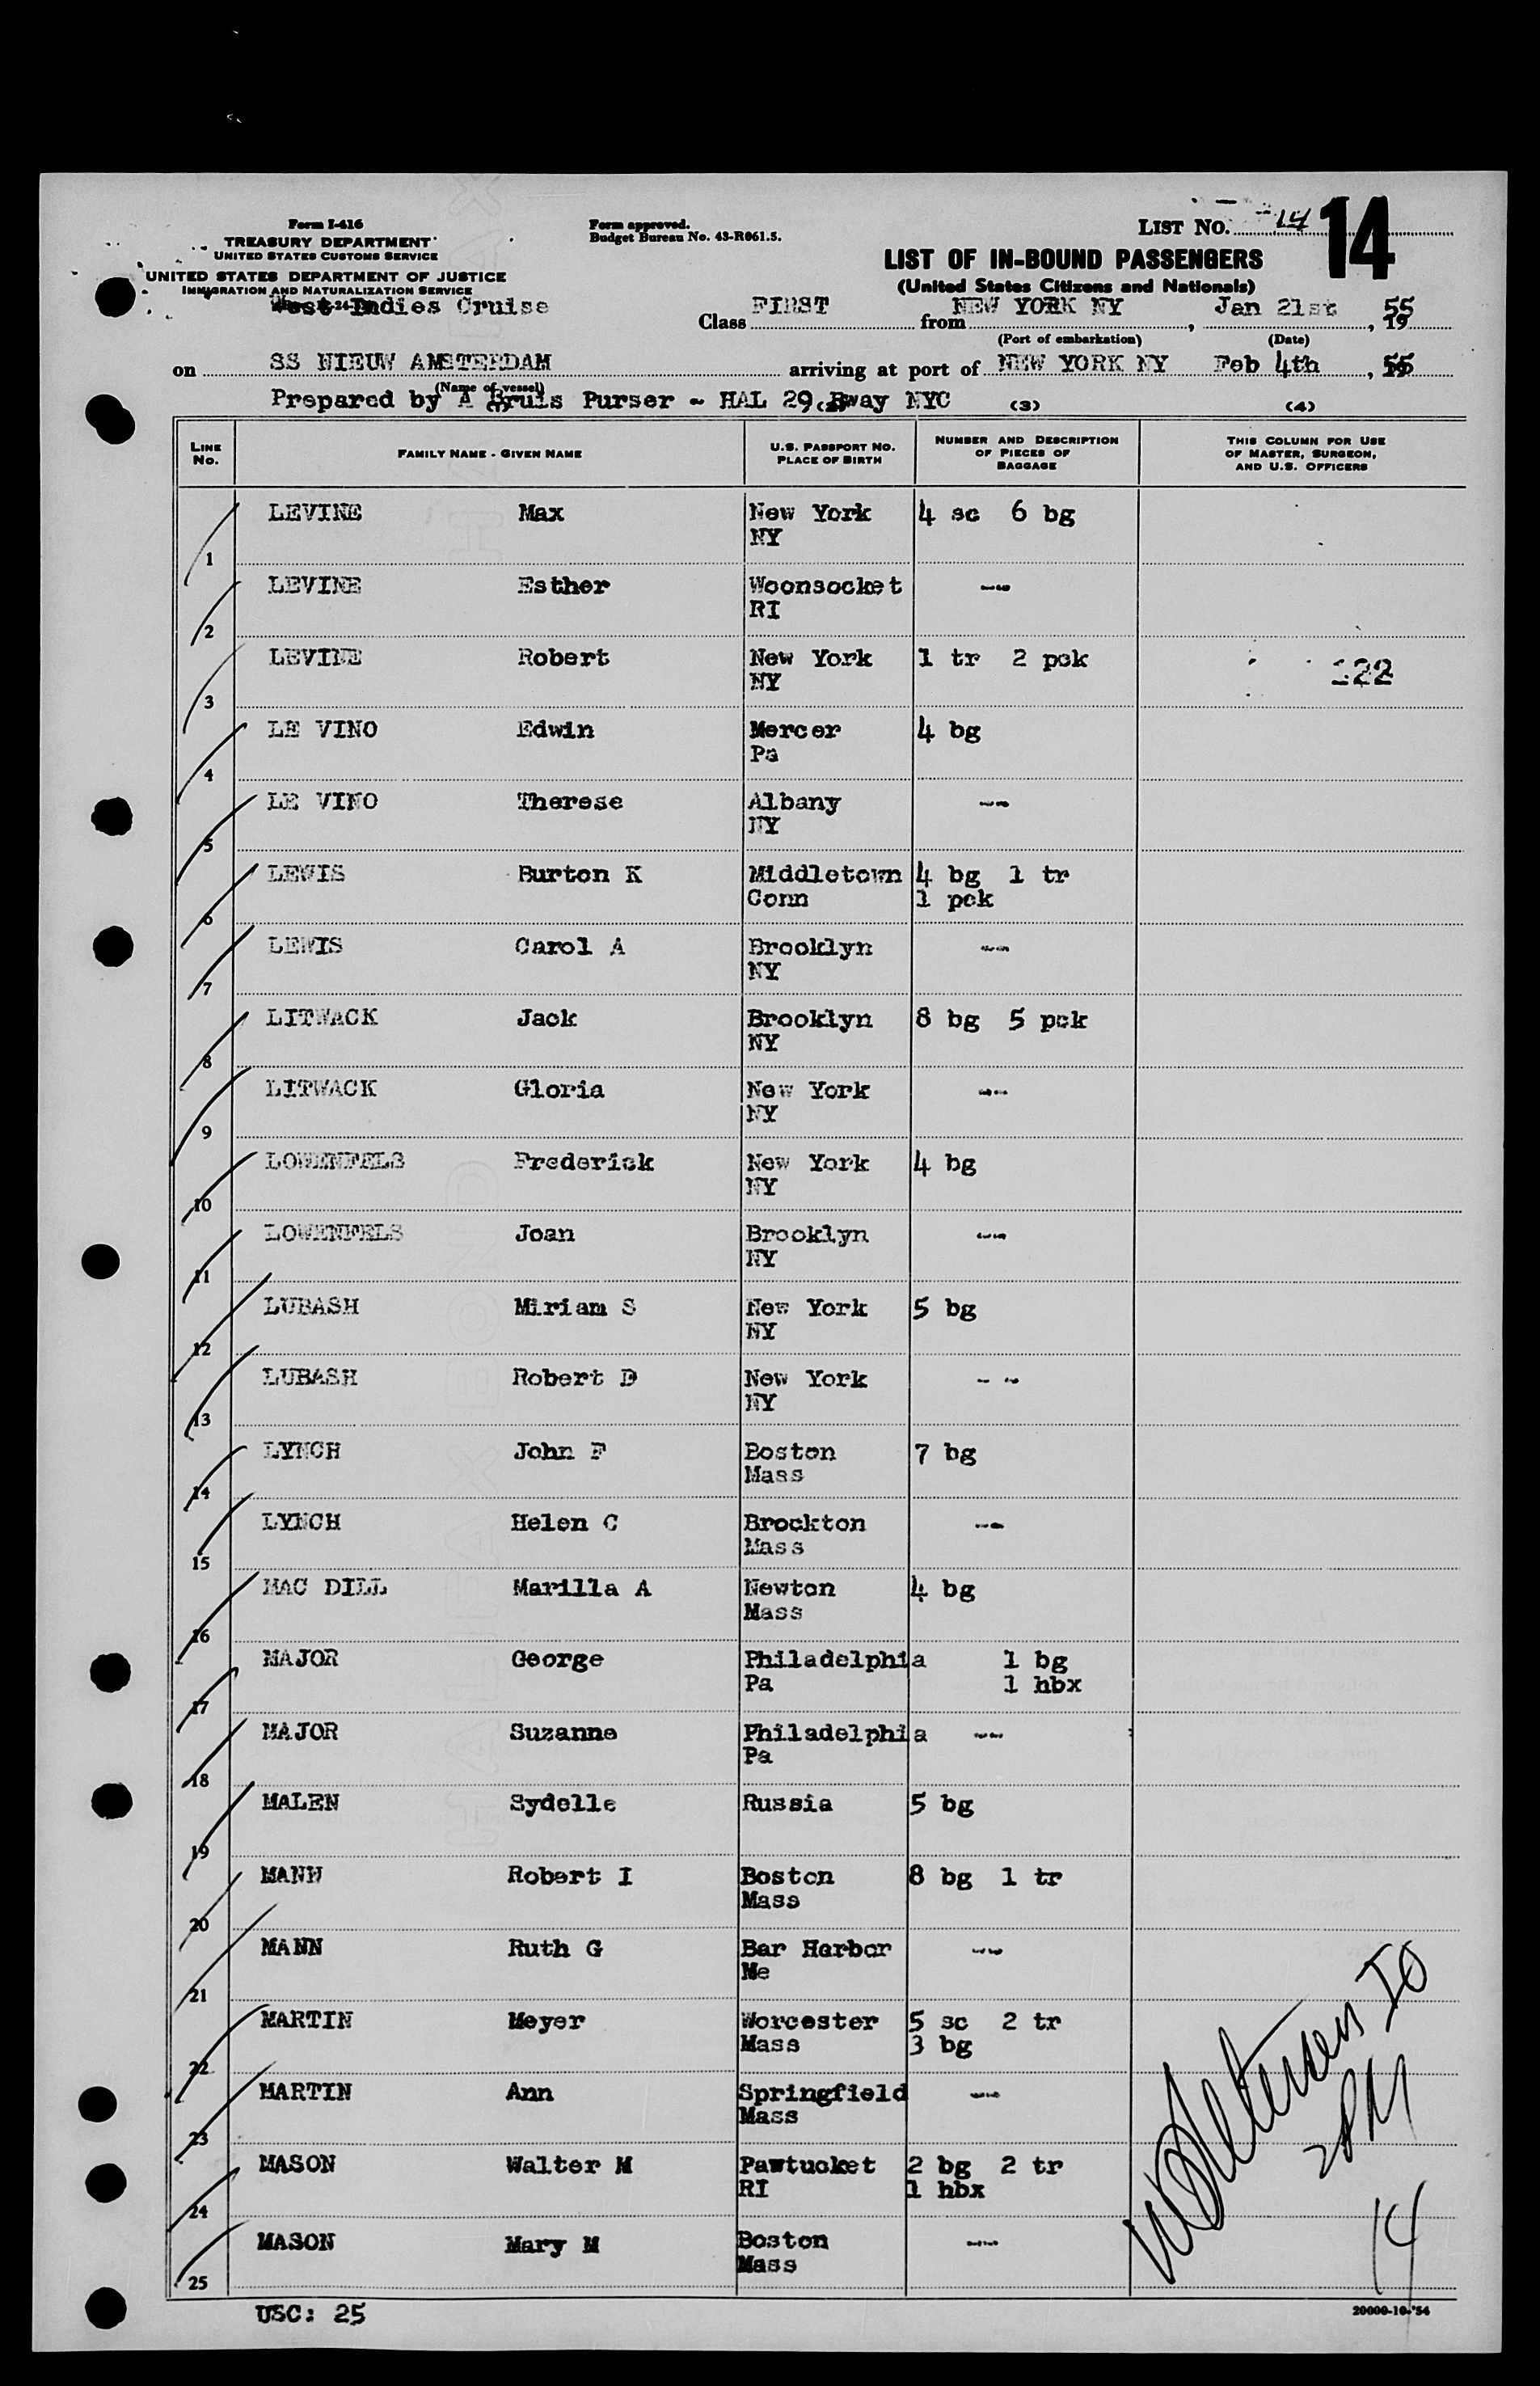 Form I-416
TREASURY DEPARTMENT
UNITED STATES CUSTOMS SERVICE
UNITED STATES DEPARTMENT OF JUSTICE
IMMIGRATION AND NATURALIZATION SERVICE
Form approved.
Budget Bureau No. 43-R061.5.
LIST No. 14 14
LIST OF IN-BOUND PASSENGERS
(United States Citizens and Nationals)
West Indies Cruise Class FIRST from NEW YORK NY, Jan 21st, 1955
(Port of embarkation) (Date)
on SS NIEUW AMSTERDAM arriving at port of NEW YORK NY Feb 4th, 55
(Name of vessel)
Prepared by A Bruls Purser - HAL 29 Bway NYC (3) (4)
LINE No. FAMILY NAME - GIVEN NAME U.S. PASSPORT NO. PLACE OF BIRTH NUMBER AND DESCRIPTION OF PIECES OF BAGGAGE THIS COLUMN FOR USE OF MASTER, SURGEON, AND U.S. OFFICERS
1 LEVINE Max New York NY 4 sc 6 bg
2 LEVINE Esther Woonsocket RI ---
3 LEVINE Robert New York NY 1 tr 2 pck 122
4 LE VINO Edwin Mercer Pa 4 bg
5 LE VINO Therese Albany NY ---
6 LEWIS Burton K Middletown Conn 4 bg 1 tr 1 pck
7 LEWIS Carol A Brooklyn NY ---
8 LITWACK Jack Brooklyn NY 8 bg 5 pck
9 LITWACK Gloria New York NY ---
10 LOWENFELS Frederick New York NY 4 bg
11 LOWENFELS Joan Brooklyn NY ---
12 LUBASH Miriam S New York NY 5 bg
13 LUBASH Robert D New York NY - --
14 LYNCH John F Boston Mass 7 bg
15 LYNCH Helen C Brockton Mass ---
16 MAC DILL Marilla A Newton Mass 4 bg
17 MAJOR George Philadelphia Pa 1 bg 1 hbx
18 MAJOR Suzanne Philadelphia Pa ---
19 MALEN Sydelle Russia 5 bg
20 MANN Robert I Boston Mass 8 bg 1 tr
21 MANN Ruth G Bar Harbor Me ---
22 MARTIN Meyer Worcester Mass 5 sc 2 tr 3 bg
23 MARTIN Ann Springfield Mass ---
24 MASON Walter M Pawtucket RI 2 bg 2 tr 1 hbx
25 MASON Mary M Boston Mass ---
14
USC: 25
20000-10-'54